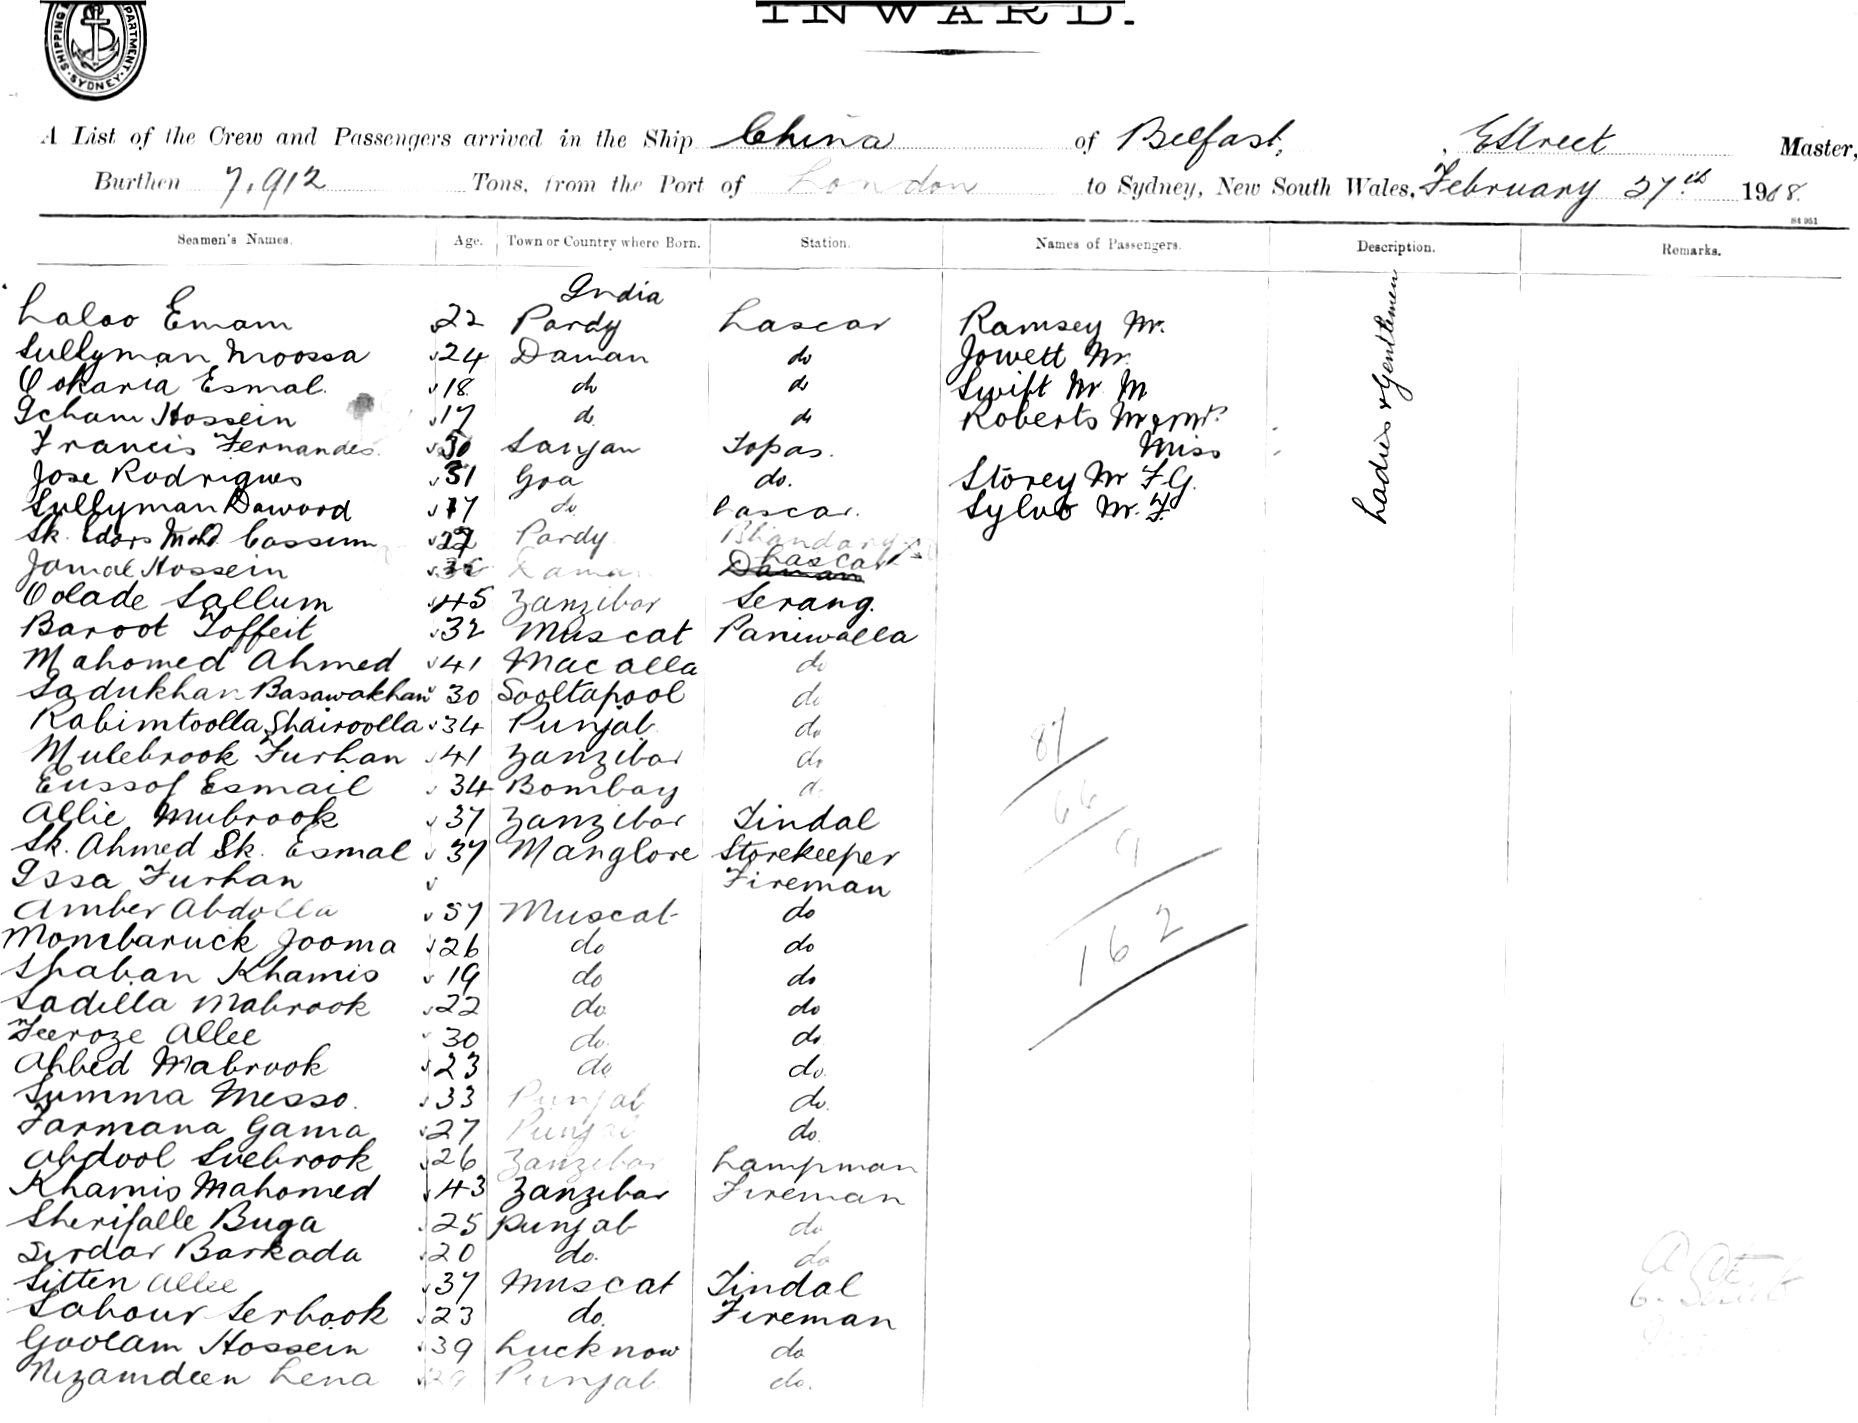 SHIPPING DEPARTMENT SYDNEY
INWARD.
A List of the Crew and Passengers arrived in the Ship China of Belfast, E Street Master,
Burthen 7,912 Tons, from the Port of London to Sydney, New South Wales, February 27th 1918.
Seamen's Names. Age. Town or Country where Born. Station. Names of Passengers. Description. Remarks.
India
Laloo Emam 22 Pardy Lascar Ramsey Mr.
Sullyman Moossa 24 Daman do Jowett Mr.
Ookaria Esmal. 18 do do Swift Mr M
Icham Hossein 17 do do Roberts Mr & Mrs.
Francis Fernandes. 50 Sanjan Topas. Miss
Jose Rodrigues 31 Goa do. Storey Mr F.G.
Sullyman Dawood 17 do Lascar. Mr. F.
Ladies & Gentlemen
Sk. Mohd. Cassum 22 Pardy Bhandary
Jamal Hossein Lascar
Daman
Oolade Sallum 45 Zanzibar Serang.
Baroot Toffeit 32 Muscat Paniwalla
Mahomed Ahmed 41 Macalla do
Sadukhan Basawakhan 30 Sooltapool do
Rabimtoolla Shairoolla 34 Punjab do
Mulebrook Furhan 41 Zanzibar do
Eussof Esmail 34 Bombay d.
Allie Mubrook 37 Zanzibar Tindal
Sk. Ahmed Sk. Esmal 37 Manglore Storekeeper
Issa Furhan Fireman
Amber Abdolla 37 Muscat do
Mombaruck Jooma 26 do do
Shaban Khamis 19 do do
Sadilla Mabrook 22 do do
Feeroze Allee 30 do. do
Abbed Mabrook 23 do do.
Summa Messo. 33 Punjab do.
Farmana Gama 27 Punjab do.
Abdool Suebrook 26 Zanzibar Lampman
Khamis Mahomed 43 Zanzibar Fireman
Sherifalle Buga 25 Punjab do
Sirdar Barkada 20 do. do
Sitten Allee 37 Muscat Tindal
Sabour Serbook 23 do. Fireman
Goolam Hossein 39 Lucknow do
Nizamdeen Lena 29 Punjab do.
87
66
9
162